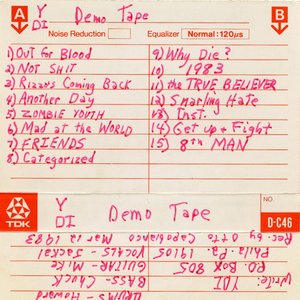 A
Y
DI
Demo Tape
B
Noise Reduction
Equalizer
Normal:120µs
1) Out for Blood
2) NOT SHIT
3) Rizzo's Coming Back
4) Another Day
5) ZOMBIE YOUTH
6) Mad at the WORLD
7) FRIENDS
8) Categorized
9) Why Die?
10) 1983
11) the TRUE BELIEVER
12) Snarling Hate
13) Inst.
14) Get up + Fight
15) 8th MAN
TDK
Y
DI
Demo Tape
NO.
D-C46
Write: YDI
P.O. Box 805
Phila. Pa. 19105
Rec. by Otto Capobianco Mar. 1983
VOCALS - Jackal
GUITAR - Mike
BASS - Chuck
DRUMS - Howard